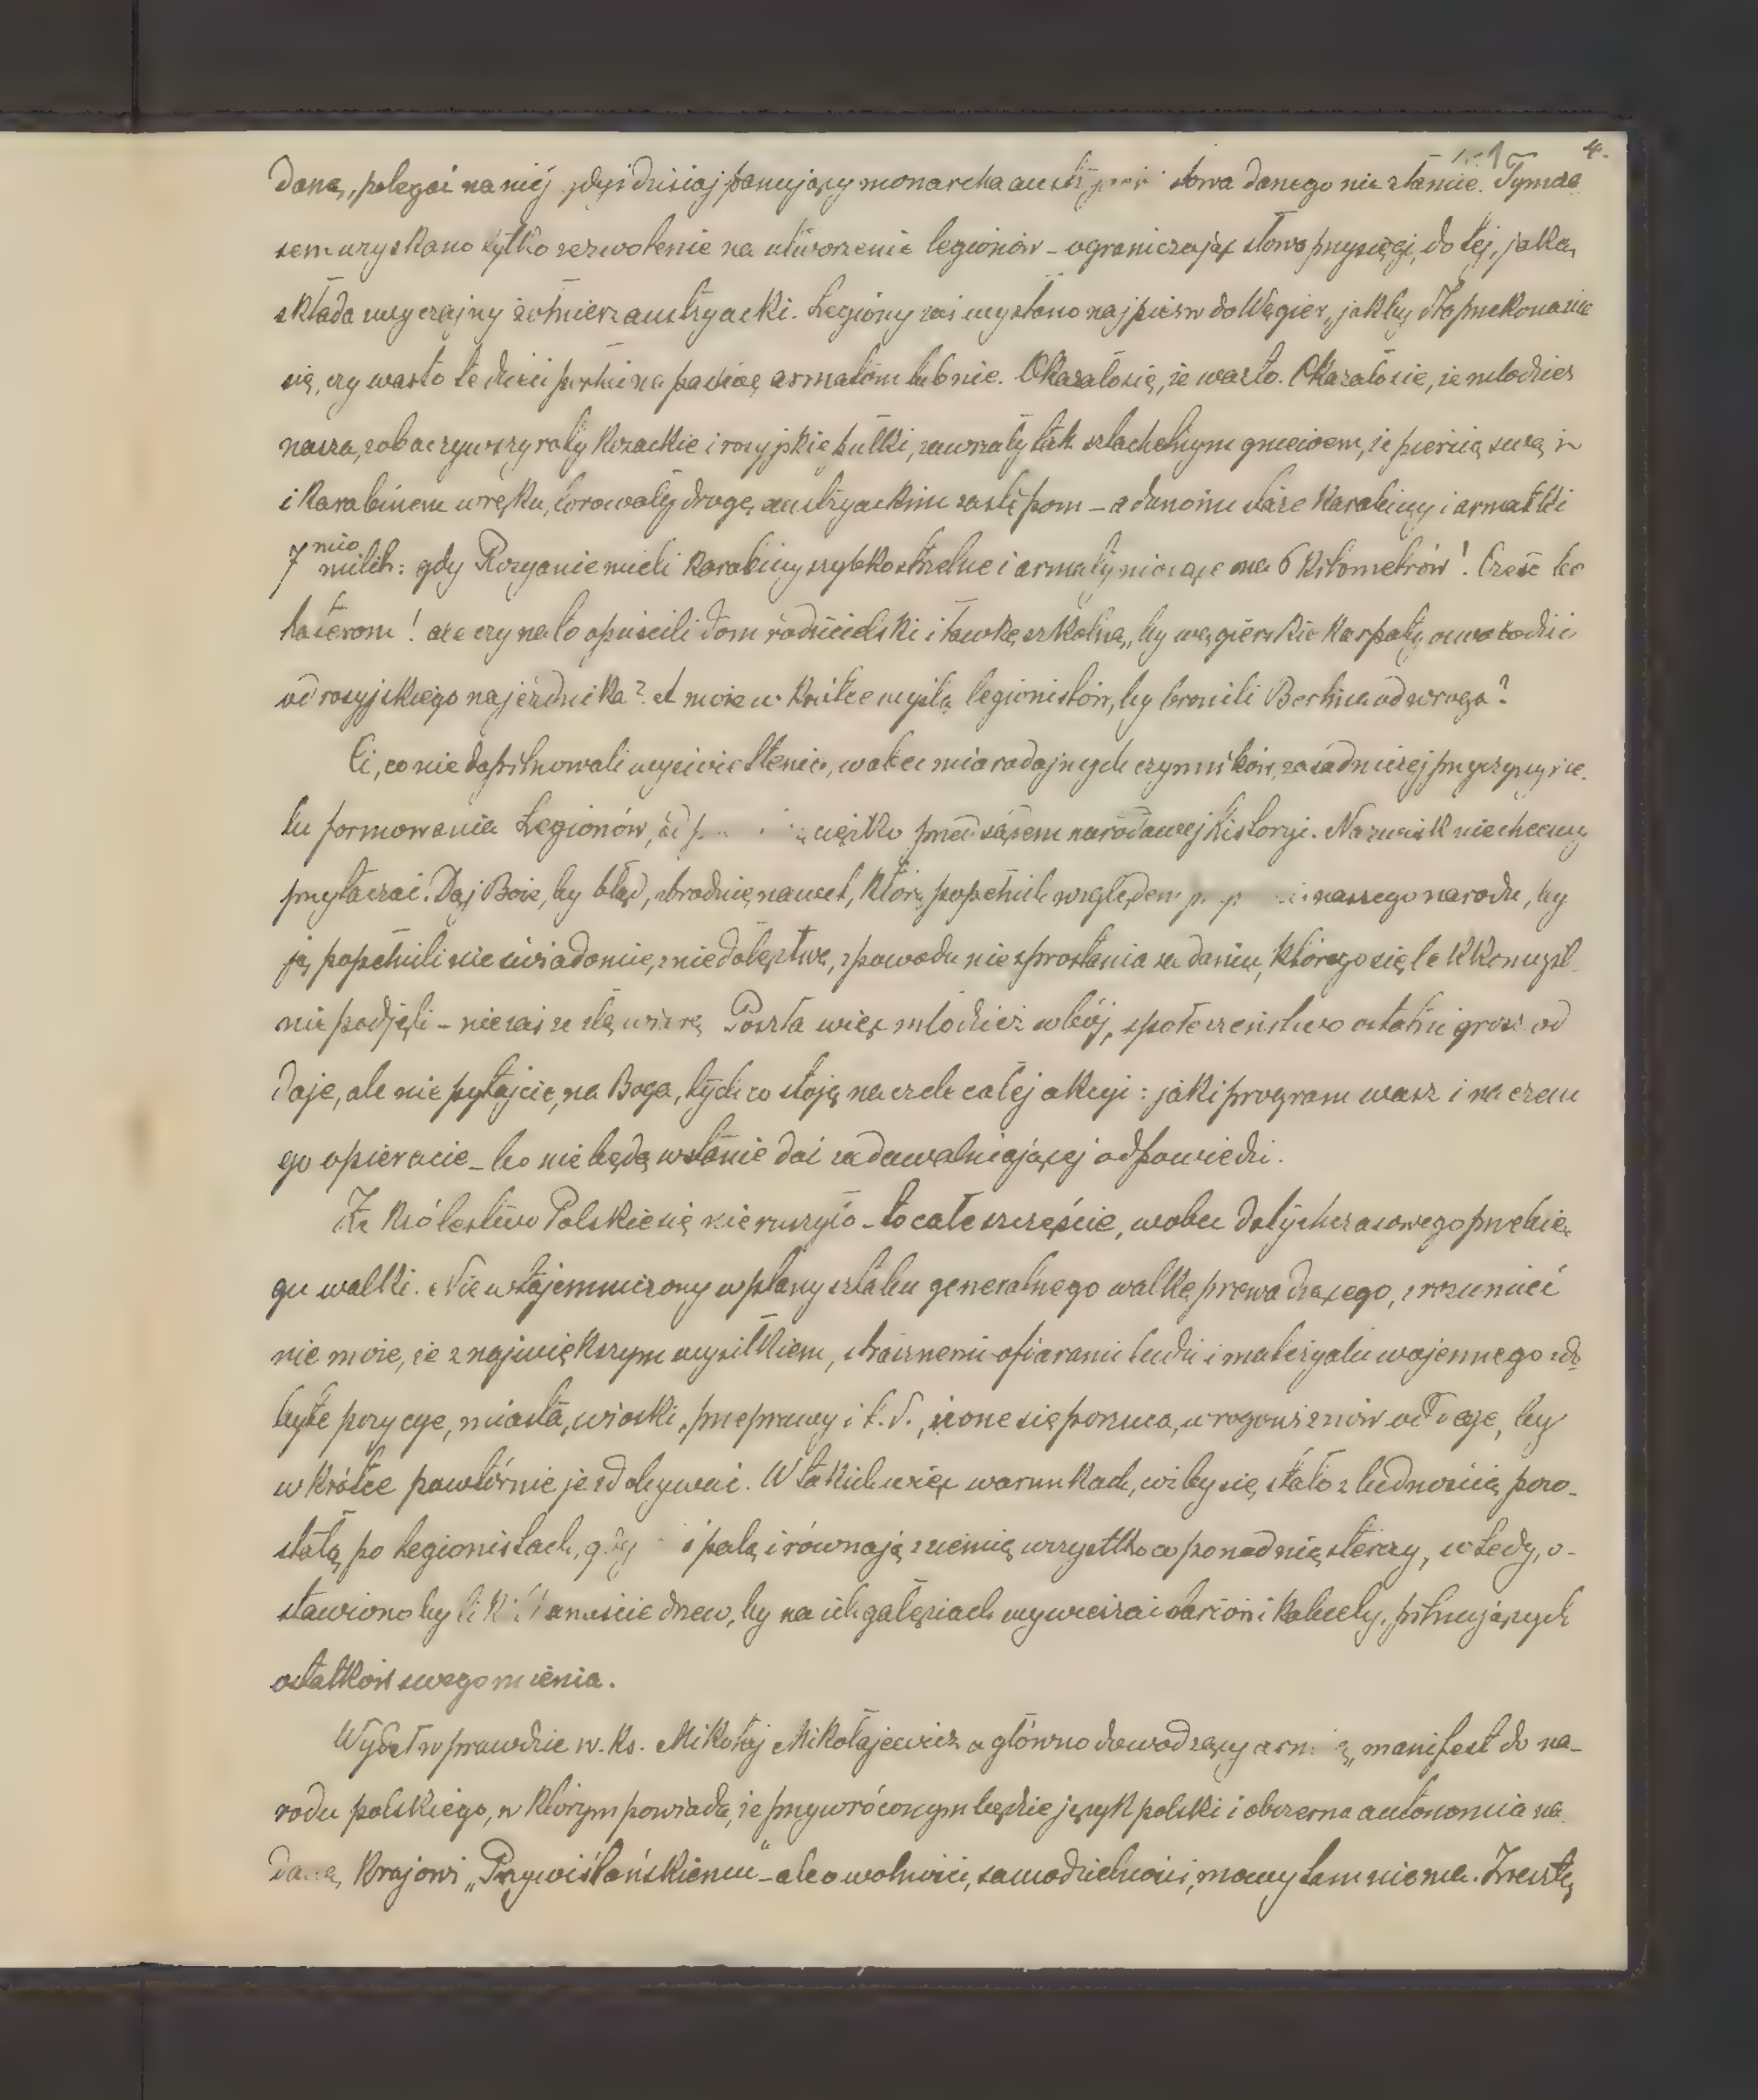 4.
daną, polegać na niej gdyż dzisiaj panujący monarcha słowa danego nie złamie. Tymcza
sem uzyskano tylko zezwolenie na utworzenie legionów – ograniczając słowo przysięgi, do tej, jaką
składa zwyczajny żołnierz austryacki. Legiony zaś wysłano najpierw do Węgier, jakby dla przekonania
się, czy warto te dzieci puścić na paszczę armatom lub nie. Okazało się, że warto. Okazało się, że młodzież
nasza, zobaczywszy roty kozackie i rosyjskie pułki, zawrzały tak szlachetnym gniewem, że piersią swą
i karabinem w ręku, torowały drogę austryackim zastępom – a dano im stare karabiny i armatki
7 mio milih: gdy Rosyanie mieli karabiny szybkostrzelne i armaty niosące na 6 kilometrów! Cześć bo
haterom! ale czy na to opuścili dom rodzicielski i ławkę szkolną, by węgierskie karpaty oswobodzić
od rosyjskiego najeźdnika? A może w krótce wyślą legionistów, by bronili Berlina od wroga?
Ci, co nie dopilnowali wyświetlenia, wobec miarodajnych czynników, zasadniczej przyczyny i ce-
lu formowania Legionów, ciężko przed sądem narodowej historyi. Nazwisk nie chcemy
przytaczać. Daj Boże, by błąd, zbrodnię nawet, którą popełnili względem naszego narodu, by
ją popełnili nieświadomie, z niedołęztwa, z powodu nie sprostania zadaniu, którego się lekkomyśl-
nie podjęli – nie zaś ze złą wiarą. Poszła więc młodzież w bój, społeczeństwo ostatni grosz od
daje, ale nie pytajcie, na Boga, tych co stoją na czele całej akcyi: jaki program wasz i na czem
go opieracie – bo nie będą w stanie dać zadawalniającej odpowiedzi.
Że Królestwo Polskie się nie ruszyło – to całe szczęście, wobec dotychczasowego przebie-
gu walki. Nie wtajemniczony w plany sztabu generalnego walkę prowadzącego, zrozumieć
nie może, że z największym wysiłkiem, strasznemi ofiarami ludzi i materyału wojennego zdo
byte pozycye, miasta, wioski, przeprawy i t. d., że one się porzuca, wrogowi znów oddaje, by
w krótce powtórnie je zdobywać. W takich więc warunkach, cóż by się stało z ludnością pozo-
stałą po legionistach, gdy i palą i równają z ziemią wszystko co ponad nią sterczy, wtedy, o-
stawiono by kilkanaście drzew, by na ich gałęziach wywieszać starców i kobiety, pilnujących
ostatków swego mienia.
Wydał wprawdzie w. ks. Mikołaj Mikołajewicz a główno dowodzący armią, manifest do na-
rodu polskiego, w którym powiada, że przywróconym będzie język polski i obszerna autonomia na
daną krajowi „Przywiślańskiemu“ – ale o wolności, samodzielności, mowy tam nie ma. Zresztą